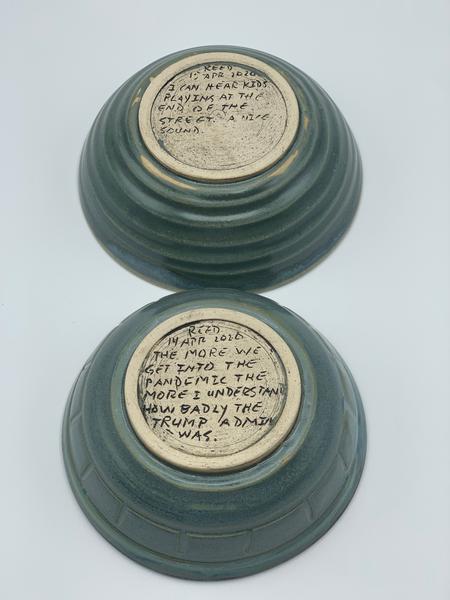 REED
15 APR 2020
I CAN HEAR KIDS
PLAYING AT THE
END OF THE
STREET. A NICE
SOUND.
REED
14 APR 2020
THE MORE WE
GET INTO THE
PANDEMIC THE
MORE I UNDERSTAND
HOW BADLY THE
TRUMP ADMIN
WAS.